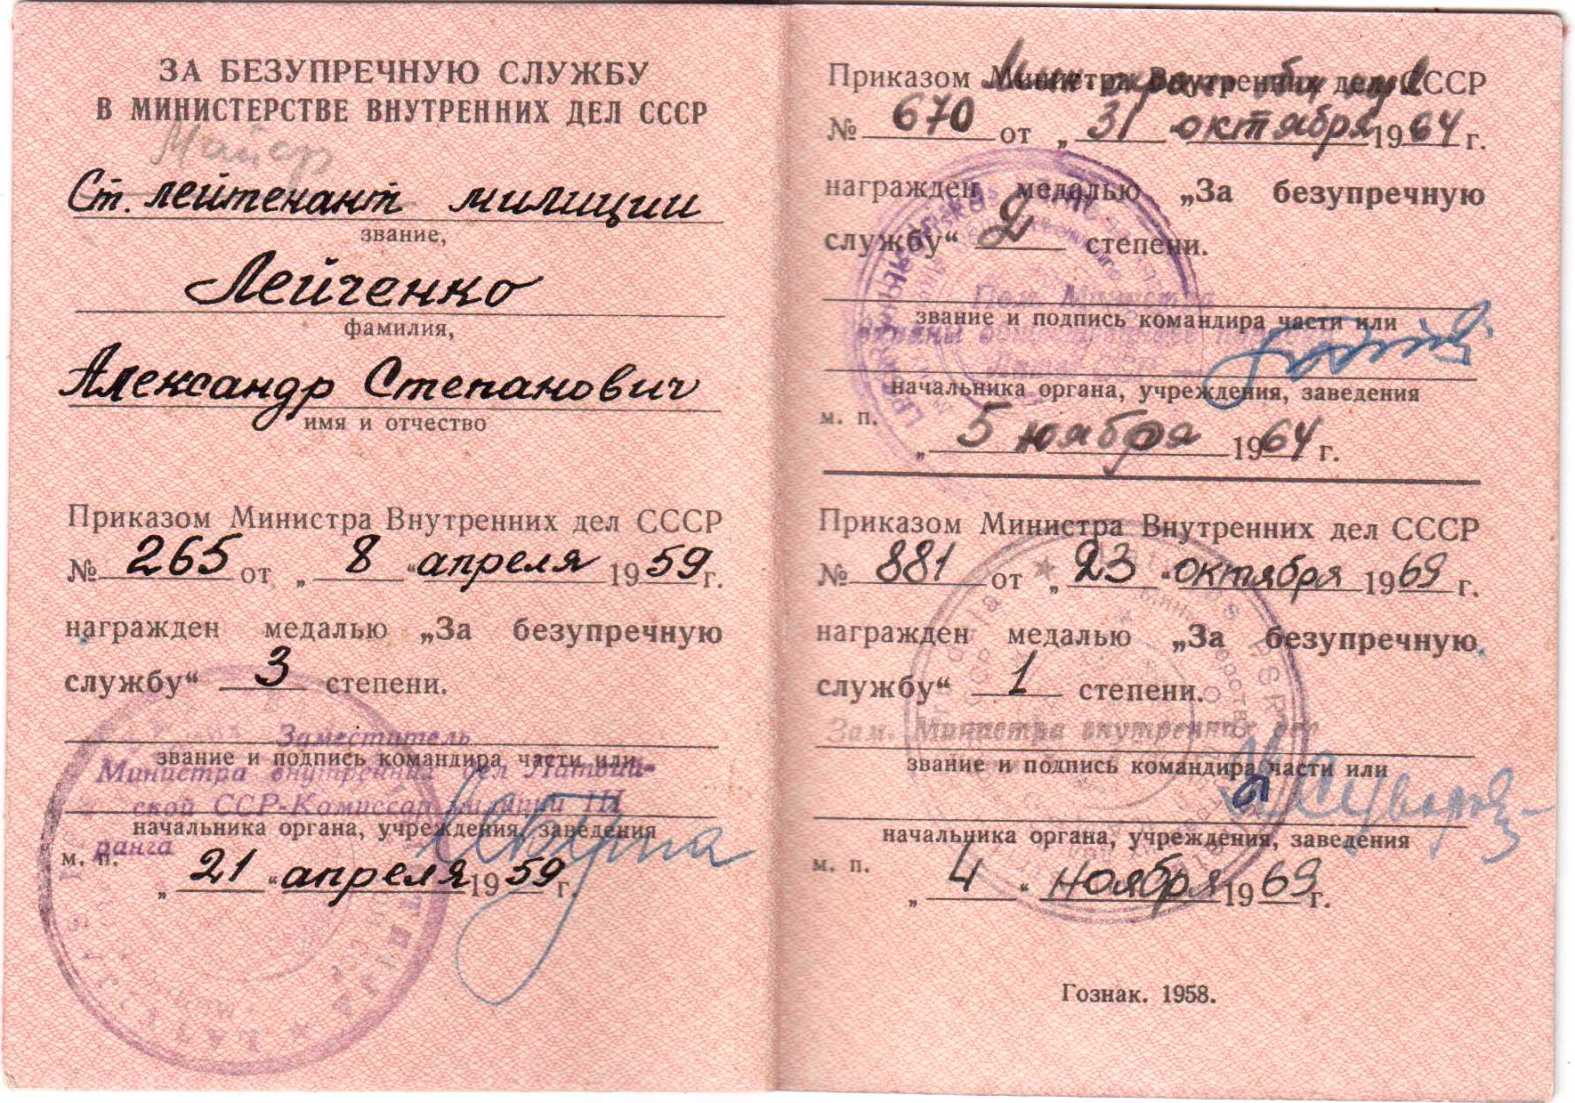 ЗА БЕЗУПРЕЧНУЮ СЛУЖБУ
В МИНИСТЕРСТВЕ ВНУТРЕННИХ ДЕЛ СССР
Майор
Ст. лейтенант милиции
звание,
Лейченко
фамилия,
Александр Степанович
имя и отчество
Приказом Министра Внутренних дел СССР
№ 265 от „ 8 “ апреля 1959 г.
награжден медалью „За безупречную
службу“ 3 степени.
Заместитель
звание и подпись командира части или
Министра внутренних дел Латвий-
ской ССР-Комиссар милиции III
начальника органа, учреждения, заведения
ранга
м. п.
„ 21 “ апреля 1959 г.
Приказом Министра Внутренних дел СССР
№ 670 от „ 31 октября 1964 г.
награжден медалью „За безупречную
службу“ 2 степени.
звание и подпись командира части или
охраны общественного
начальника органа, учреждения, заведения
м. п.
„ 5 ноября 1964 г.
Приказом Министра Внутренних дел СССР
№ 881 от „ 23 “ октября 1969 г.
награжден медалью „За безупречную
службу“ 1 степени.
Зам. Министра внутренних дел
звание и подпись командира части или
начальника органа, учреждения, заведения
м. п.
„ 4 “ ноября 1969 г.
Гознак. 1958.